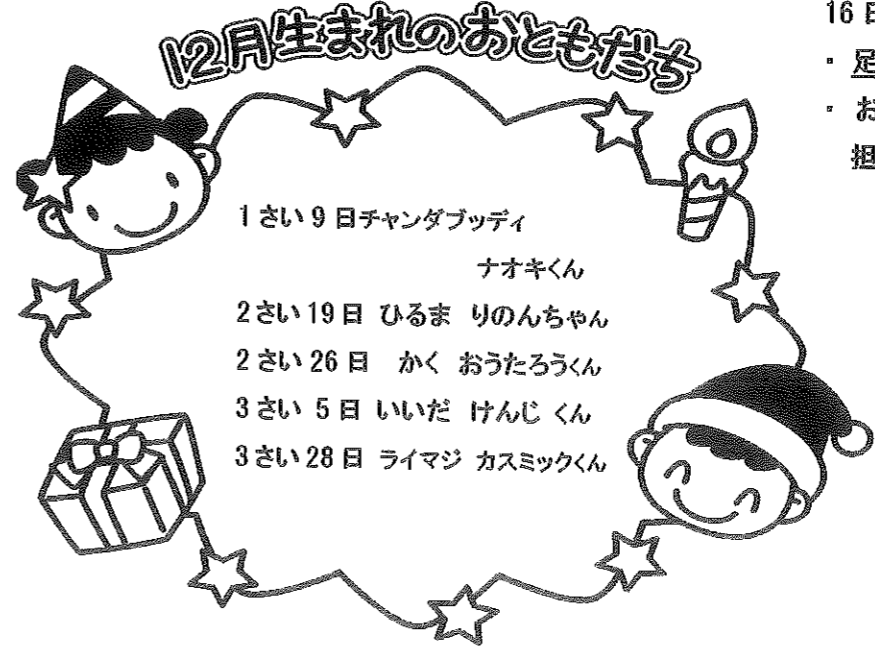 12月生まれのおともだち
1さい 9日チャンダブッディ
ナオキくん
2さい 19日 ひるま りのんちゃん
2さい 26日 かく おうたろうくん
3さい 5日 いいだ けんじ くん
3さい 28日 ライマジ カスミックくん
16日
・足
・お
担